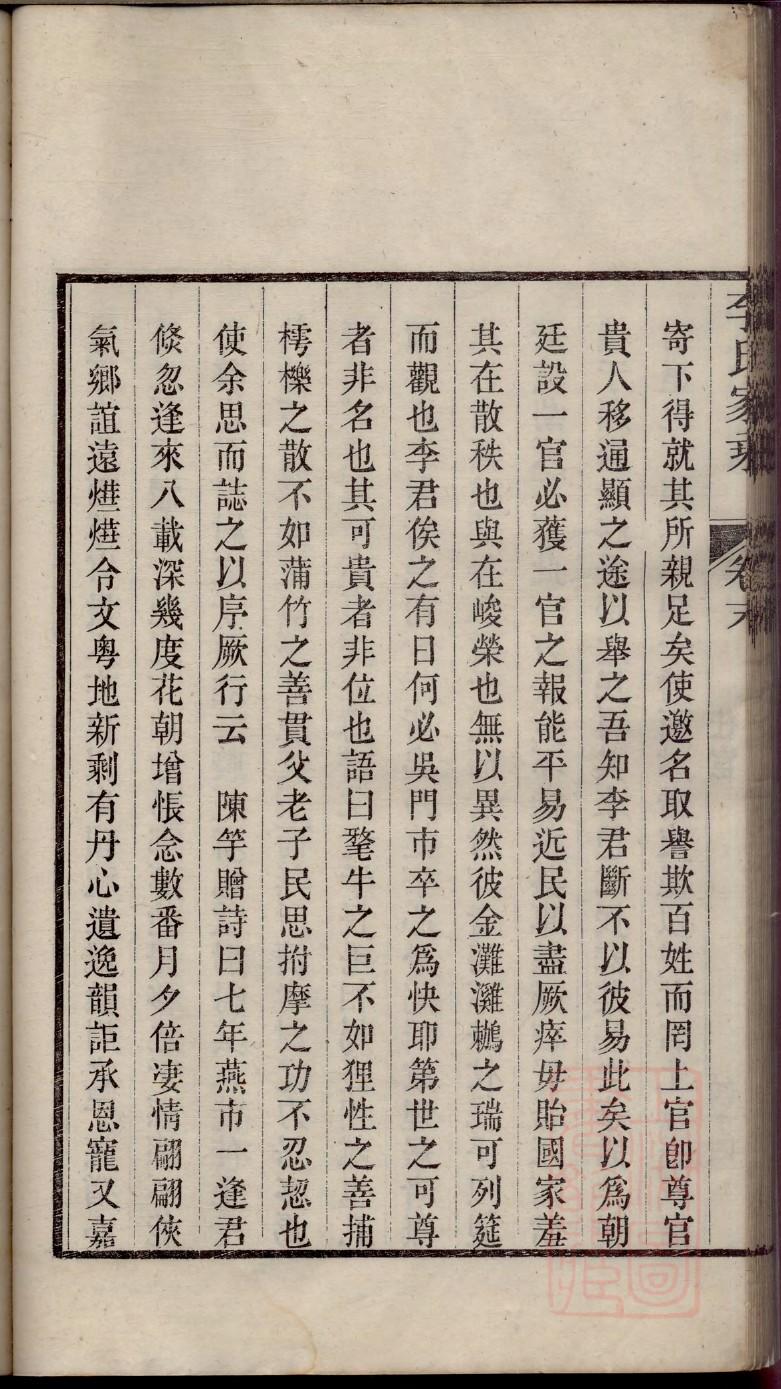 李氏家乘 卷末
寄下得就其所親足矣使邀名取譽欺百姓而罔上官卽尊官
貴人移通顯之途以舉之吾知李君斷不以彼易此矣以爲朝
廷設一官必獲一官之報能平易近民以盡厥瘁毋貽國家羞
其在散秩也與在峻榮也無以異然彼金灘鸂鶒之瑞可列筵
而觀也李君俟之有日何必吳門市卒之爲快耶第世之可尊
者非名也其可貴者非位也語曰氂牛之巨不如狸性之善捕
樗櫟之散不如蒲竹之善貫父老子民思拊摩之功不忍恝也
使余思而誌之以序厥行云　陳竽贈詩曰七年燕市一逢君
倐忽逢來八載深幾度花朝增悵念數番月夕倍淒情翩翩俠
氣鄉誼遠爗爗令文粵地新剩有丹心遺逸韻詎承恩寵又嘉